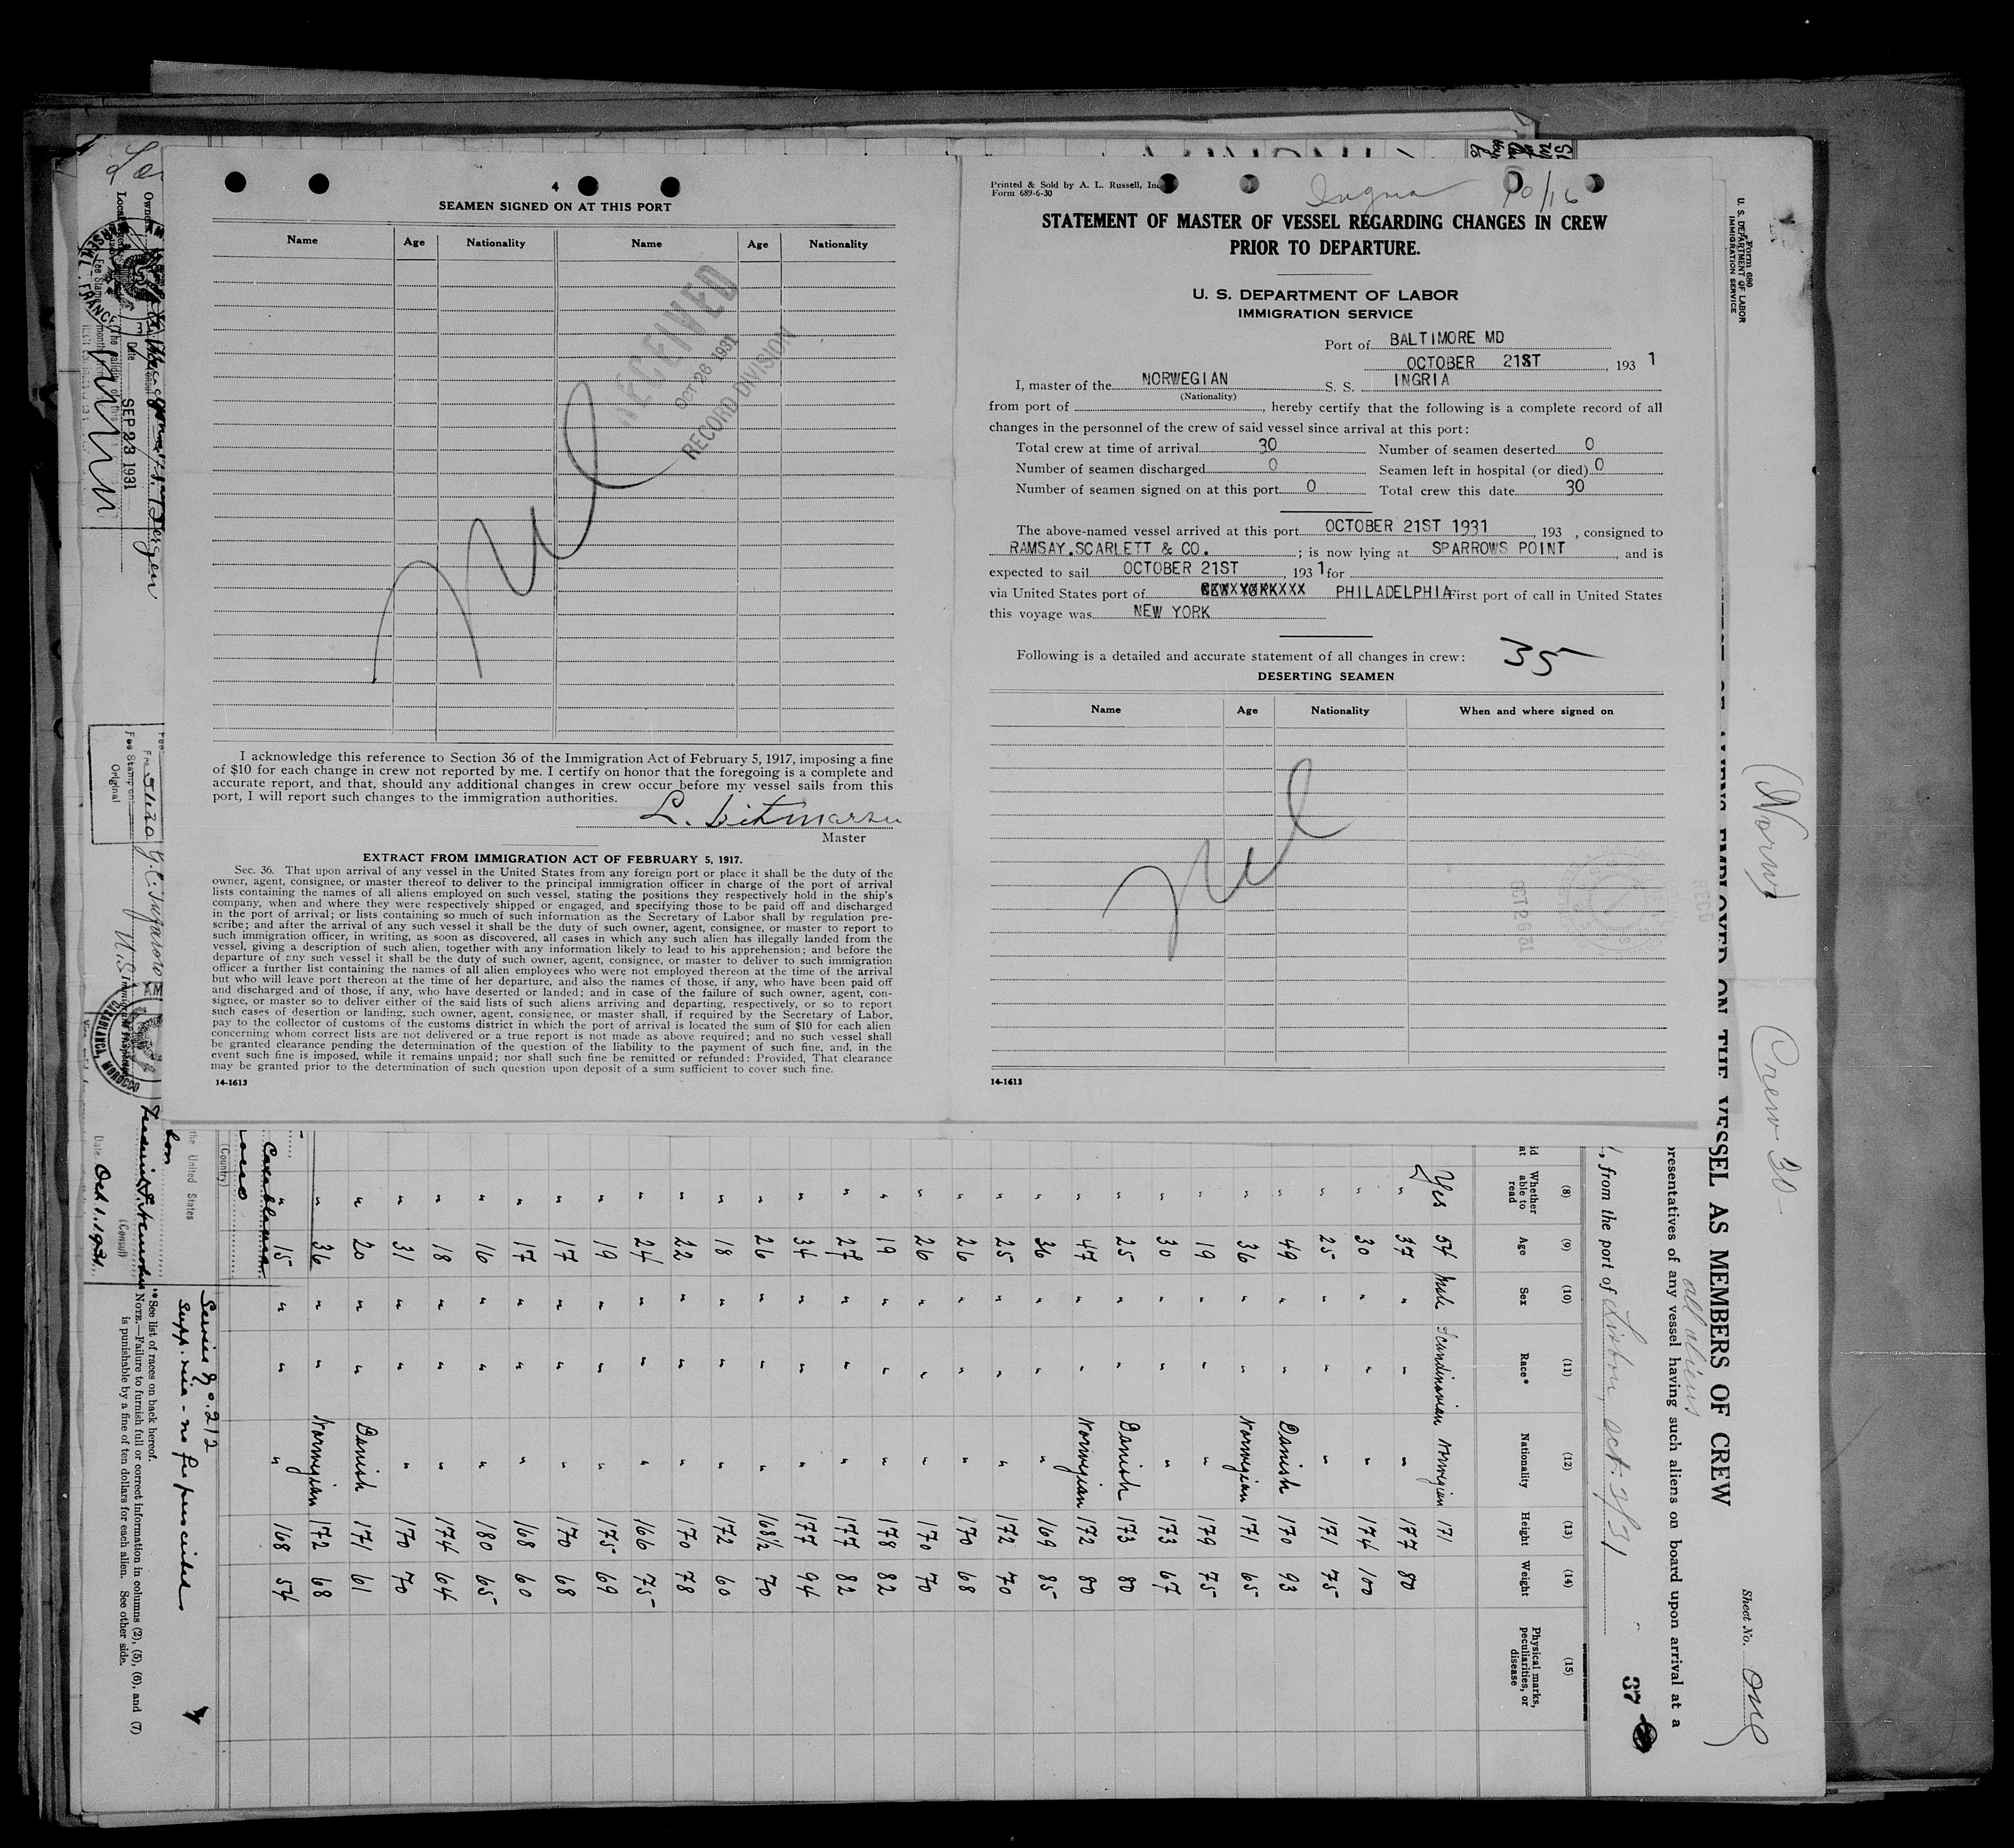 4
SEAMEN SIGNED ON AT THIS PORT
Name Age Nationality Name Age Nationality
RECEIVED
OCT 26 1931
RECORD DIVISION
I acknowledge this reference to Section 36 of the Immigration Act of February 5, 1917, imposing a fine
of $10 for each change in crew not reported by me. I certify on honor that the foregoing is a complete and
accurate report, and that, should any additional changes in crew occur before my vessel sails from this
port, I will report such changes to the immigration authorities.
L.
Master
EXTRACT FROM IMMIGRATION ACT OF FEBRUARY 5, 1917.
Sec. 36. That upon arrival of any vessel in the United States from any foreign port or place it shall be the duty of the
owner, agent, consignee, or master thereof to deliver to the principal immigration officer in charge of the port of arrival
lists containing the names of all aliens employed on such vessel, stating the positions they respectively hold in the ship's
company, when and where they were respectively shipped or engaged, and specifying those to be paid off and discharged
in the port of arrival; or lists containing so much of such information as the Secretary of Labor shall by regulation pre-
scribe; and after the arrival of any such vessel it shall be the duty of such owner, agent, consignee, or master to report to
such immigration officer, in writing, as soon as discovered, all cases in which any such alien has illegally landed from the
vessel, giving a description of such alien, together with any information likely to lead to his apprehension; and before the
departure of any such vessel it shall be the duty of such owner, agent, consignee, or master to deliver to such immigration
officer a further list containing the names of all alien employees who were not employed thereon at the time of the arrival
but who will leave port thereon at the time of her departure, and also the names of those, if any, who have been paid off
and discharged and of those, if any, who have deserted or landed; and in case of the failure of such owner, agent, con-
signee, or master so to deliver either of the said lists of such aliens arriving and departing, respectively, or so to report
such cases of desertion or landing, such owner, agent, consignee, or master shall, if required by the Secretary of Labor,
pay to the collector of customs of the customs district in which the port of arrival is located the sum of $10 for each alien
concerning whom correct lists are not delivered or a true report is not made as above required; and no such vessel shall
be granted clearance pending the determination of the question of the liability to the payment of such fine, and, in the
event such fine is imposed, while it remains unpaid; nor shall such fine be remitted or refunded: Provided, That clearance
may be granted prior to the determination of such question upon deposit of a sum sufficient to cover such fine.
14-1613
Printed & Sold by A. L. Russell, Inc
Form 689-6-30
Ingria 10/16
STATEMENT OF MASTER OF VESSEL REGARDING CHANGES IN CREW
PRIOR TO DEPARTURE.
U. S. DEPARTMENT OF LABOR
IMMIGRATION SERVICE
Port of BALTIMORE MD
OCTOBER 21ST, 1931
I, master of the NORWEGIAN S. S. INGRIA
(Nationality)
from port of , hereby certify that the following is a complete record of all
changes in the personnel of the crew of said vessel since arrival at this port:
Total crew at time of arrival 30 Number of seamen deserted 0
Number of seamen discharged 0 Seamen left in hospital (or died) 0
Number of seamen signed on at this port 0 Total crew this date 30
The above-named vessel arrived at this port OCTOBER 21ST 1931, 193 , consigned to
RAMSAY.SCARLETT & CO. ; is now lying at SPARROWS POINT, and is
expected to sail OCTOBER 21ST, 1931 for
via United States port of PHILADELPHIA First port of call in United States
this voyage was NEW YORK
Following is a detailed and accurate statement of all changes in crew: 35
DESERTING SEAMEN
Name Age Nationality When and where signed on
nil
OCT 26 31
14-1613
Form 680
U. S. DEPARTMENT OF LABOR
IMMIGRATION SERVICE
(Norw) Crew 30
Sheet No. one
EMPLOYED ON THE VESSEL AS MEMBERS OF CREW
all aliens
presentatives of any vessel having such aliens on board upon arrival at a
, from the port of Lisbon, Oct. 3/31
37
(8) (9) (10) (11) (12) (13) (14) (15)
Whether able to read Age Sex Race* Nationality Height Weight Physical marks, peculiarities, or disease
Yes 54 Male Scandinavian Norwegian 171
" 37 " " " 177 80
" 30 " " " 174 100
" 25 " " " 171 75
" 49 " " Danish 170 93
" 36 " " Norwegian 171 65
" 19 " " " 179 75
" 30 " " " 173 67
" 25 " " Danish 173 80
" 47 " " Norwegian 172 80
" 36 " " " 169 85
" 25 " " " 172 70
" 26 " " " 170 68
" 26 " " " 170 70
" 19 " " " 178 82
" 27 " " " 177 82
" 34 " " " 177 94
" 26 " " " 168 1/2 70
" 18 " " " 172 60
" 22 " " " 170 78
" 24 " " " 166 75
" 19 " " " 175 69
" 17 " " " 170 68
" 17 " " " 168 60
" 16 " " " 180 65
" 18 " " " 174 64
" 31 " " " 170 70
" 20 " " Danish 171 61
" 36 " " Norwegian 172 68
" 15 " " " 168 54
Casablanca
(Country)
the United States
Service No. 212
Supp. visa - no fee prescribed
* See list of races on back hereof.
NOTE.—Failure to furnish full or correct information in columns (2), (5), (6), and (7)
is punishable by a fine of ten dollars for each alien. See other side.
(Consul)
Date Oct 1. 1931
CASABLANCA, MOROCCO
Fee Stamp on
Original
SEP 23 1931
Date
FRANCE
Bergen